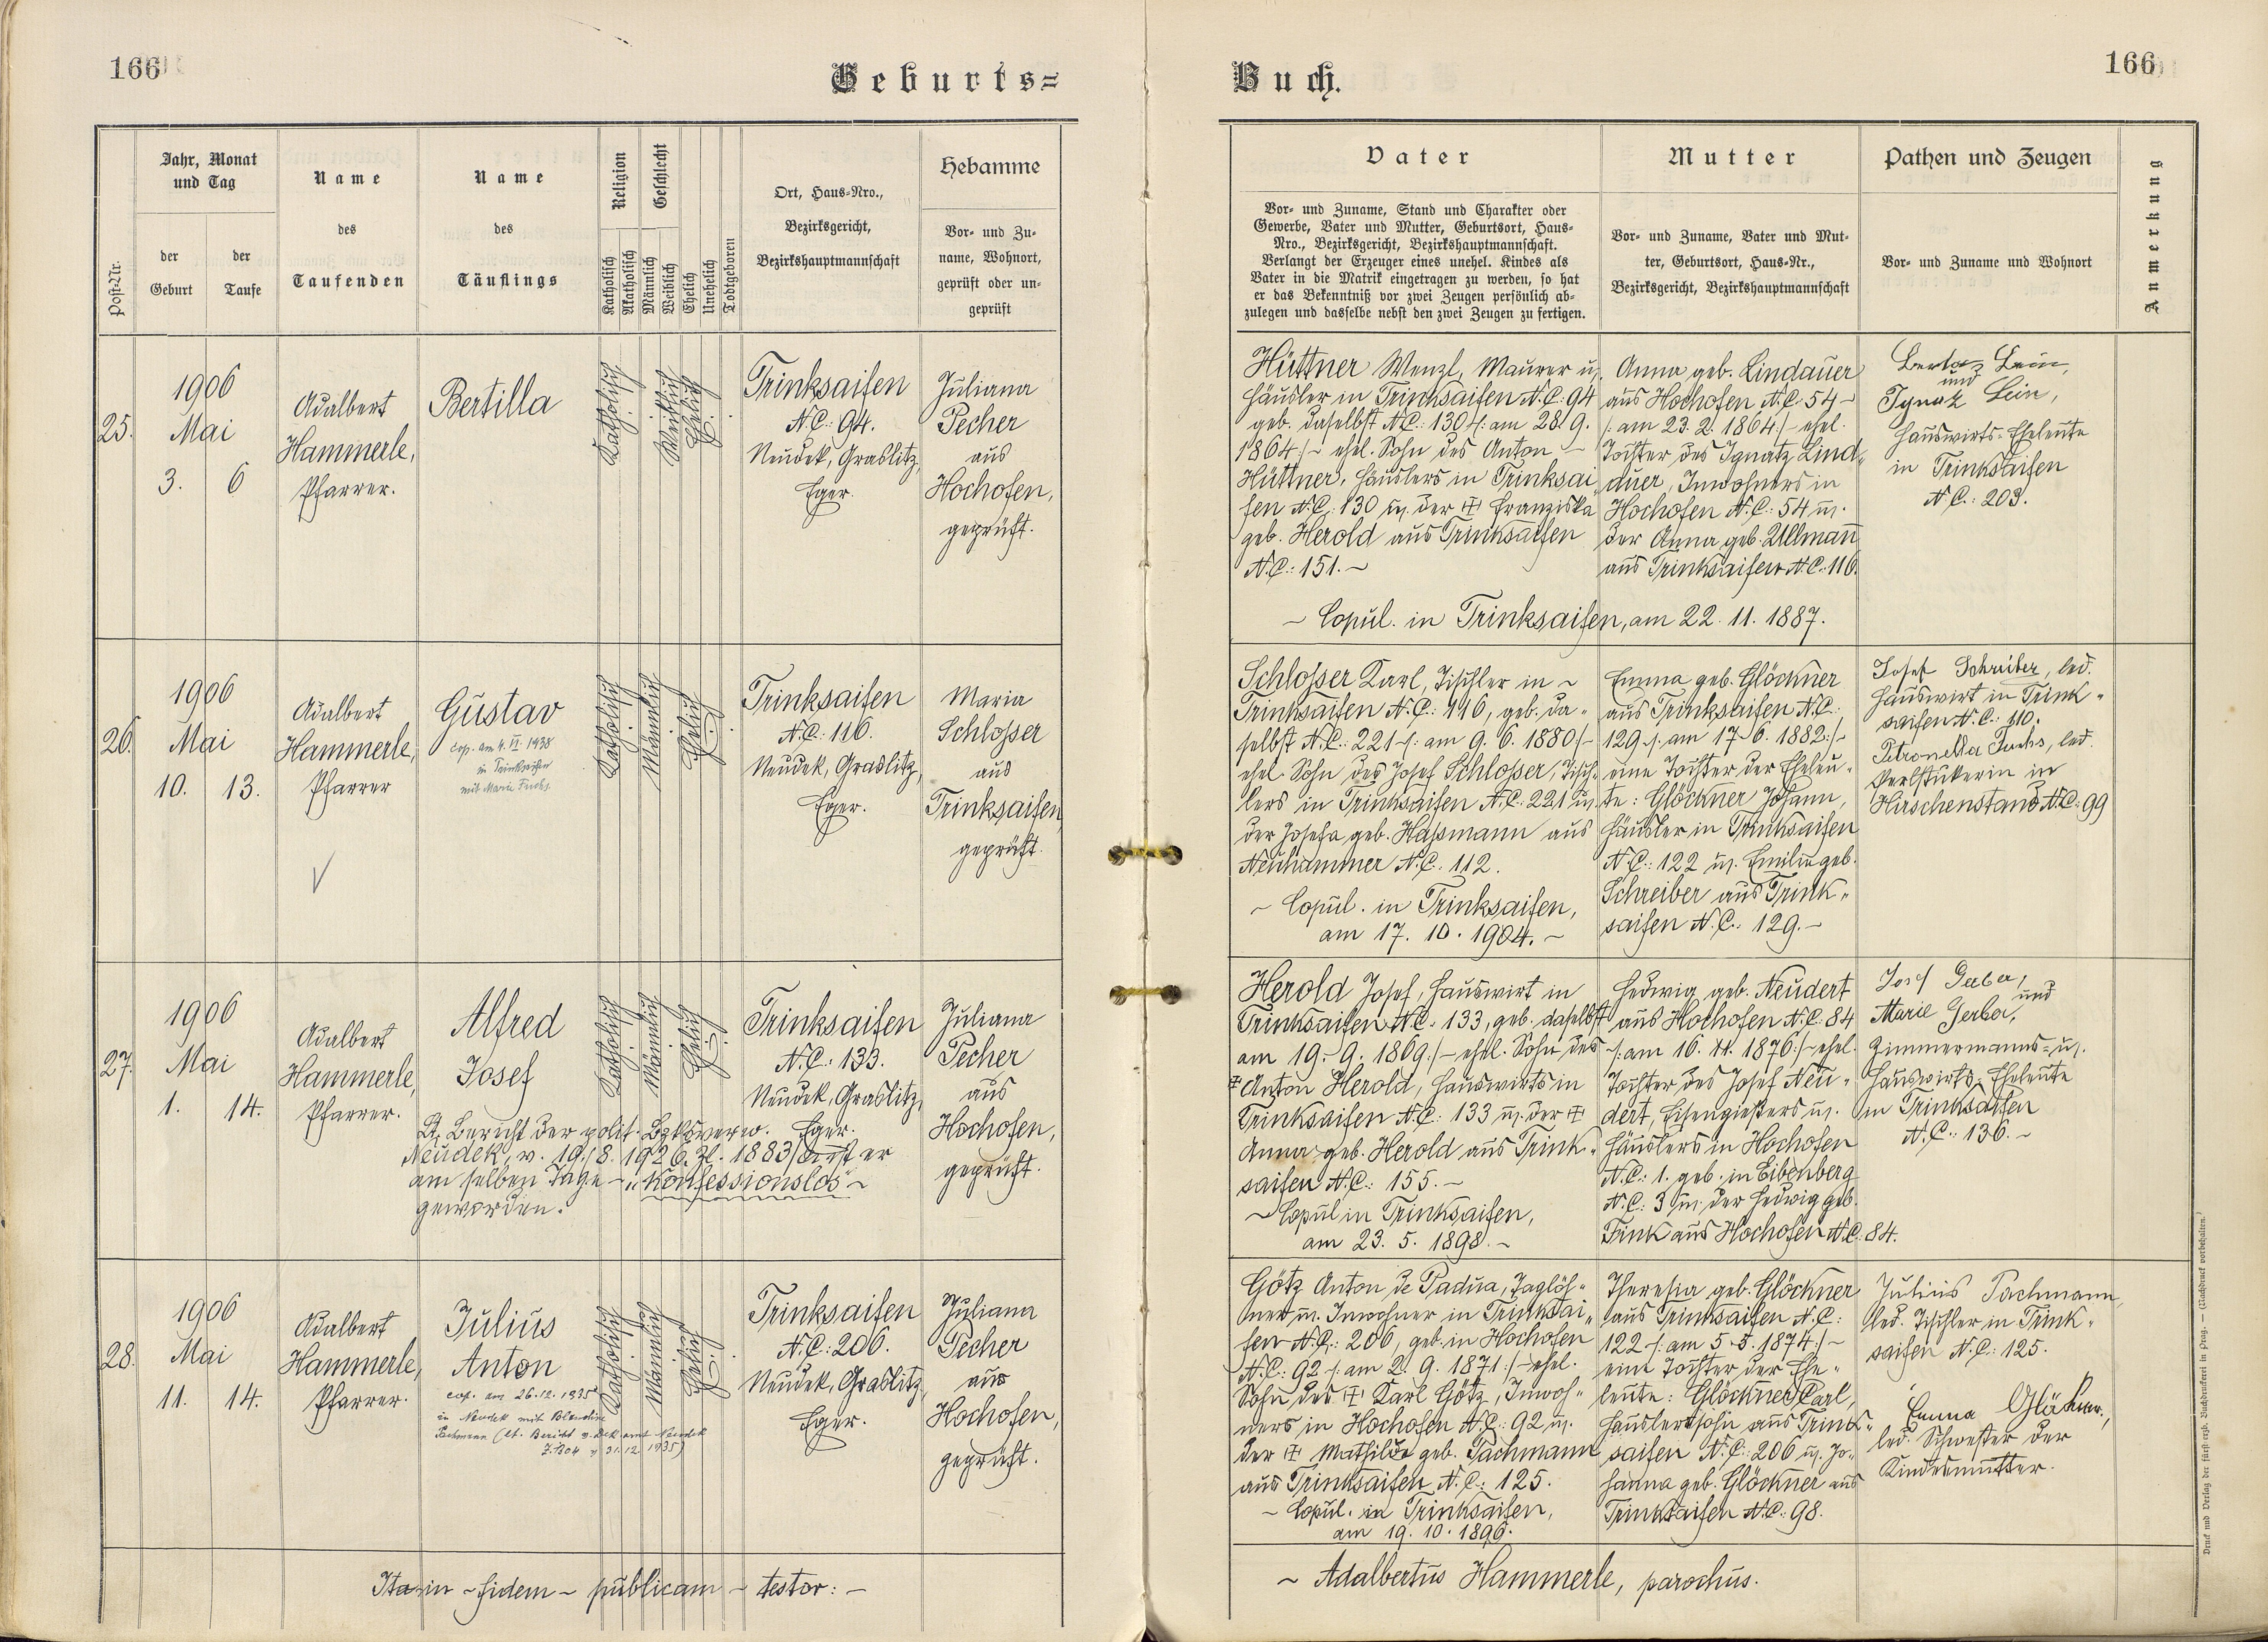 166
Geburts=
Jahr, Monat
und Tag
Name
Name
Religion
Geschlecht
Hebamme
Ort, Haus=Nro.,
Bezirksgericht,
Bezirkshauptmannschaft
Post=Nr.
der
Geburt
der
Taufe
des
Taufenden
des
Täuflings
Katholisch
Akatholisch
Männlich
Weiblich
Ehelich
Unehelich
Todtgeboren
Vor= und Zu=
name, Wohnort,
geprüft oder un=
geprüft
25.
1906
Mai
3. 6
Adalbert
Hammerle,
Pfarrer.
Bertilla
Katholisch
Weiblich
Ehelich
Trinksaifen
N.C.: 94.
Neudek, Graslitz,
Eger.
Juliana
Pecher
aus
Hochofen,
geprüft.
26.
1906
Mai
10. 13.
Adalbert
Hammerle,
Pfarrer
Gustav
cop. am 4. VI. 1938
in Trinksaifen
mit Marie Fuchs
Katholisch
Männlich
Ehelich
Trinksaifen
N.C.: 116.
Neudek, Graslitz,
Eger.
Maria
Schlosser
aus
Trinksaifen,
geprüft.
27.
1906
Mai
1. 14.
Adalbert
Hammerle,
Pfarrer.
Alfred
Josef
Katholisch
Männlich
Ehelich
Trinksaifen
N.C.: 133.
Neudek, Graslitz,
Eger.
Lt. Bericht der polit. Bzksverw.
Neudek, v. 19./8. 1926. Zl. 1883/ ist er
am selben Tage – "konfessionslos" ~
geworden.
Juliana
Pecher
aus
Hochofen,
geprüft.
28.
1906
Mai
11. 14.
Adalbert
Hammerle,
Pfarrer.
Julius
Anton
cop. am 26.12.1935
in Neudek mit Blandine
Pachmann (lt. Bericht v. Dek.amt Neudek
v. 31.12.1935)
Katholisch
Männlich
Ehelich
Trinksaifen
N.C.: 206.
Neudek, Graslitz,
Eger.
Juliana
Pecher
aus
Hochofen,
geprüft.
Ita in ~ fidem ~ publicam ~ testor: –
Buch.
166
Vater
Mutter
Pathen und Zeugen
Anmerkung
Vor= und Zuname, Stand und Charakter oder
Gewerbe, Vater und Mutter, Geburtsort, Haus=
Nro., Bezirksgericht, Bezirkshauptmannschaft.
Verlangt der Erzeuger eines unehel. Kindes als
Vater in die Matrik eingetragen zu werden, so hat
er das Bekenntniß vor zwei Zeugen persönlich ab=
zulegen und dasselbe nebst den zwei Zeugen zu fertigen.
Vor= und Zuname, Vater und Mut=
ter, Geburtsort, Haus=Nr.,
Bezirksgericht, Bezirkshauptmannschaft
Vor= und Zuname und Wohnort
Hüttner Wenzl, Maurer u.
Häusler in Trinksaifen N.C. 94
geb. daselbst N.C.: 130 /: am 28. 9.
1864 :/ ~ ehel. Sohn des Anton ~
Hüttner, Häuslers in Trinksai
fen N.C.: 130 u. der Franziska
geb. Herold aus Trinksaifen
N.C.: 151. ~
Anna geb. Lindauer
aus Hochofen N.C.: 54 ~
/: am 23. 2. 1864 :/ ~ ehel.
Tochter des Ignatz Lind=
auer, Inwohners in
Hochofen N.C.: 54 u.
der Anna geb. Ullmann
aus Trinksaifen N.C.: 116.
~ Copul. in Trinksaifen, am 22. 11. 1887.
Berta Lein,
und
Ignaz Lein,
Hauswirts=Eheleute
in Trinksaifen
N.C.: 203.
Schlosser Karl, Tischler in ~
Trinksaifen N.C.: 116, geb. da=
selbst N.C.: 221 /: am 9. 6. 1880 :/ ~
ehel. Sohn des Josef Schlosser, Tisch=
lers in Trinksaifen N.C.: 221 u.
der Josefa geb. Hassmann aus
Neuhammer N.C.: 112.
~ Copul. in Trinksaifen,
am 17. 10. 1904. ~
Emma geb. Glöckner
aus Trinksaifen N.C.:
129 /: am 17. 6. 1882 :/ ~
eine Tochter der Eheleu=
te: Glöckner Johann,
Häusler in Trinksaifen
N.C.: 122 u. Emilie geb.
Schreiber aus Trink=
saifen N.C.: 129. ~
Josef Schreiber, led.
Hauswirt in Trink=
saifen N.C.: 110.
Petronella Fuchs, led.
Perlstickerin in
Hirschenstand N.C.: 99
Herold Josef, Hauswirt in
Trinksaifen N.C.: 133, geb. daselbst
am 19. 9. 1869 :/ ~ ehel. Sohn des
Anton Herold, Hauswirts in
Trinksaifen N.C.: 133 u. der
Anna geb. Herold aus Trink=
saifen N.C.: 155. ~
~ Copul in Trinksaifen,
am 23. 5. 1898. ~
Hedwig geb. Neudert
aus Hochofen N.C.: 84
/: am 16. 11. 1876 :/ ~ ehel.
Tochter des Josef Neu=
dert, Eisengießers u.
Häuslers in Hochofen
N.C.: 1. geb. in Eibenberg
N.C.: 3 u. der Hedwig geb.
Fink aus Hochofen N.C.: 84.
Josef Gerber,
und
Marie Gerber,
Zimmermanns= u.
Hauswirts=Eheleute
in Trinksaifen
N.C.: 136. ~
Götz Anton de Padua, Taglöh=
ner u. Inwohner in Trinksai=
fen N.C.: 206, geb. in Hochofen
N.C.: 92 /: am 2. 9. 1871 :/ ~ ehel.
Sohn des Karl Götz, Inwoh=
ners in Hochofen N.C.: 92 u.
der Mathilde geb. Pachmann
aus Trinksaifen N.C.: 125.
~ Copul. in Trinksaifen,
am 19. 10. 1896.
Theresia geb. Glöckner
aus Trinksaifen N.C.:
122 /: am 5. 5. 1874 :/ ~
eine Tochter der Ehe=
leute: Glöckner Carl,
Häuslerssohn aus Trink=
saifen N.C.: 206 u. Jo=
hanna geb. Glöckner aus
Trinksaifen N.C.: 98.
Julius Pachmann,
led. Tischler in Trink=
saifen N.C.: 125.
Emma Glöckner,
led. Schwester der
Kindesmutter.
~ Adalbertus Hammerle, parochus.
Druck und Verlag der fürst=erzb. Buchdruckerei in Prag. — (Nachdruck vorbehalten.)